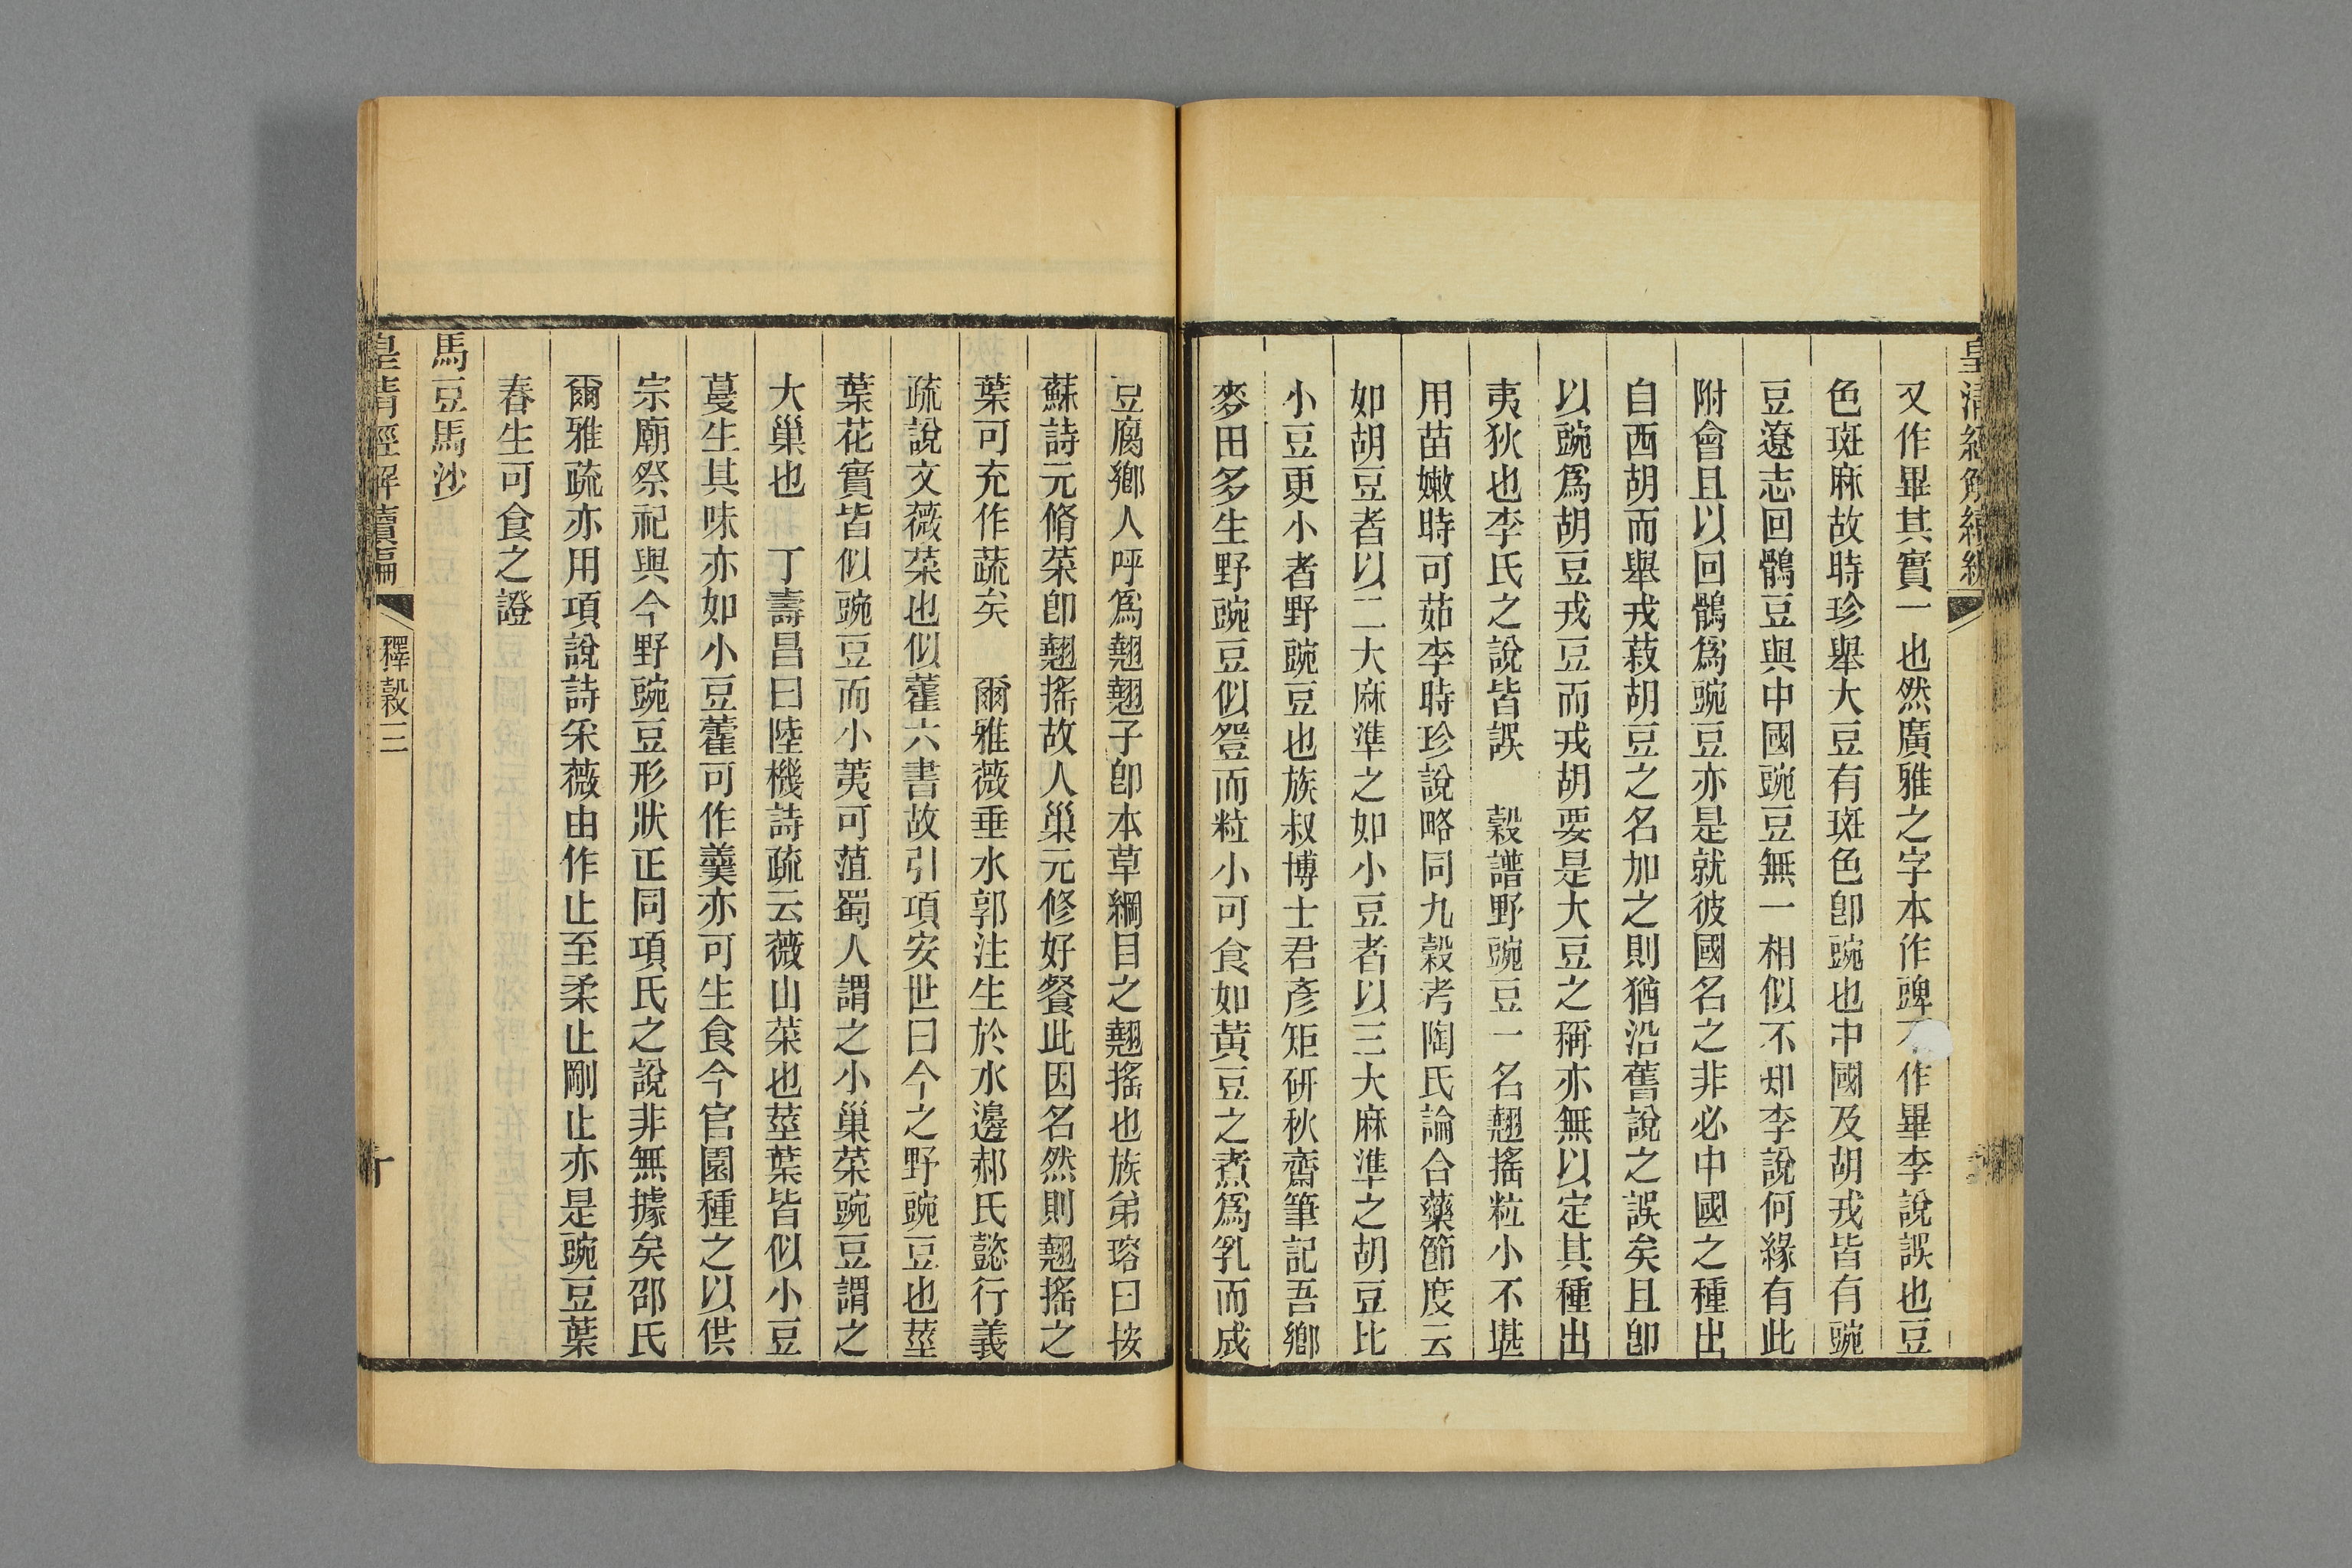 皇清經解續編
又作畢其實一也然廣雅之字本作豍不作畢李說誤也豆
色斑麻故時珍舉大豆有斑色卽豌也中國及胡戎皆有豌
豆遼志回鶻豆與中國豌豆無一相似不知李說何緣有此
附會且以回鶻爲豌豆亦是就彼國名之非必中國之種出
自西胡而舉戎菽胡豆之名加之則猶沿舊說之誤矣且卽
以豌爲胡豆戎豆而戎胡要是大豆之稱亦無以定其種出
夷狄也李氏之說皆誤　穀譜野豌豆一名翹搖粒小不堪
用苗嫩時可茹李時珍說略同九穀考陶氏論合藥節度云
如胡豆者以二大麻準之如小豆者以三大麻準之胡豆比
小豆更小者野豌豆也族叔博士君彥矩研秋齋筆記吾鄉
麥田多生野豌豆似䝁而粒小可食如黃豆之煮爲乳而成
豆腐鄉人呼爲翹翹子卽本草綱目之翹搖也族弟瑢曰按
蘇詩元脩菜卽翹搖故人巢元修好餐此因名然則翹搖之
葉可充作蔬矣　爾雅薇垂水郭注生於水邊郝氏懿行義
疏說文薇菜也似藿六書故引項安世曰今之野豌豆也莖
葉花實皆似豌豆而小荑可葅蜀人謂之小巢菜豌豆謂之
大巢也　丁壽昌曰陸機詩疏云薇山菜也莖葉皆似小豆
蔓生其味亦如小豆藿可作羹亦可生食今官園種之以供
宗廟祭祀與今野豌豆形狀正同項氏之說非無據矣邵氏
爾雅疏亦用項說詩采薇由作止至柔止剛止亦是豌豆葉
春生可食之證
馬豆馬沙
皇清經解續編 釋穀三 十